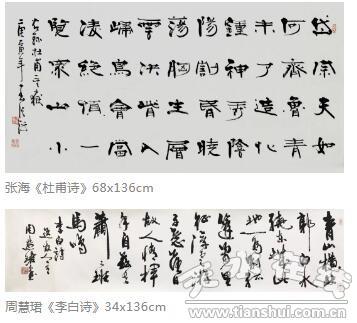 岱宗夫如
何齊魯青
未了造化
鍾神秀陰
陽割昏曉
蕩胸生層
雲決眥入
歸鳥會當
凌絕頂一
覽眾山小
右錄杜甫望嶽
张海《杜甫诗》68x136cm
青山橫北
郭白水
繞東城此
地一為別
孤蓬萬里
征浮雲遊
子意落日
故人情揮
手自茲去
蕭蕭班
馬鳴
李白詩
送友人
周慧珺書
周慧珺《李白诗》34x136cm
www.tianshui.com.cn